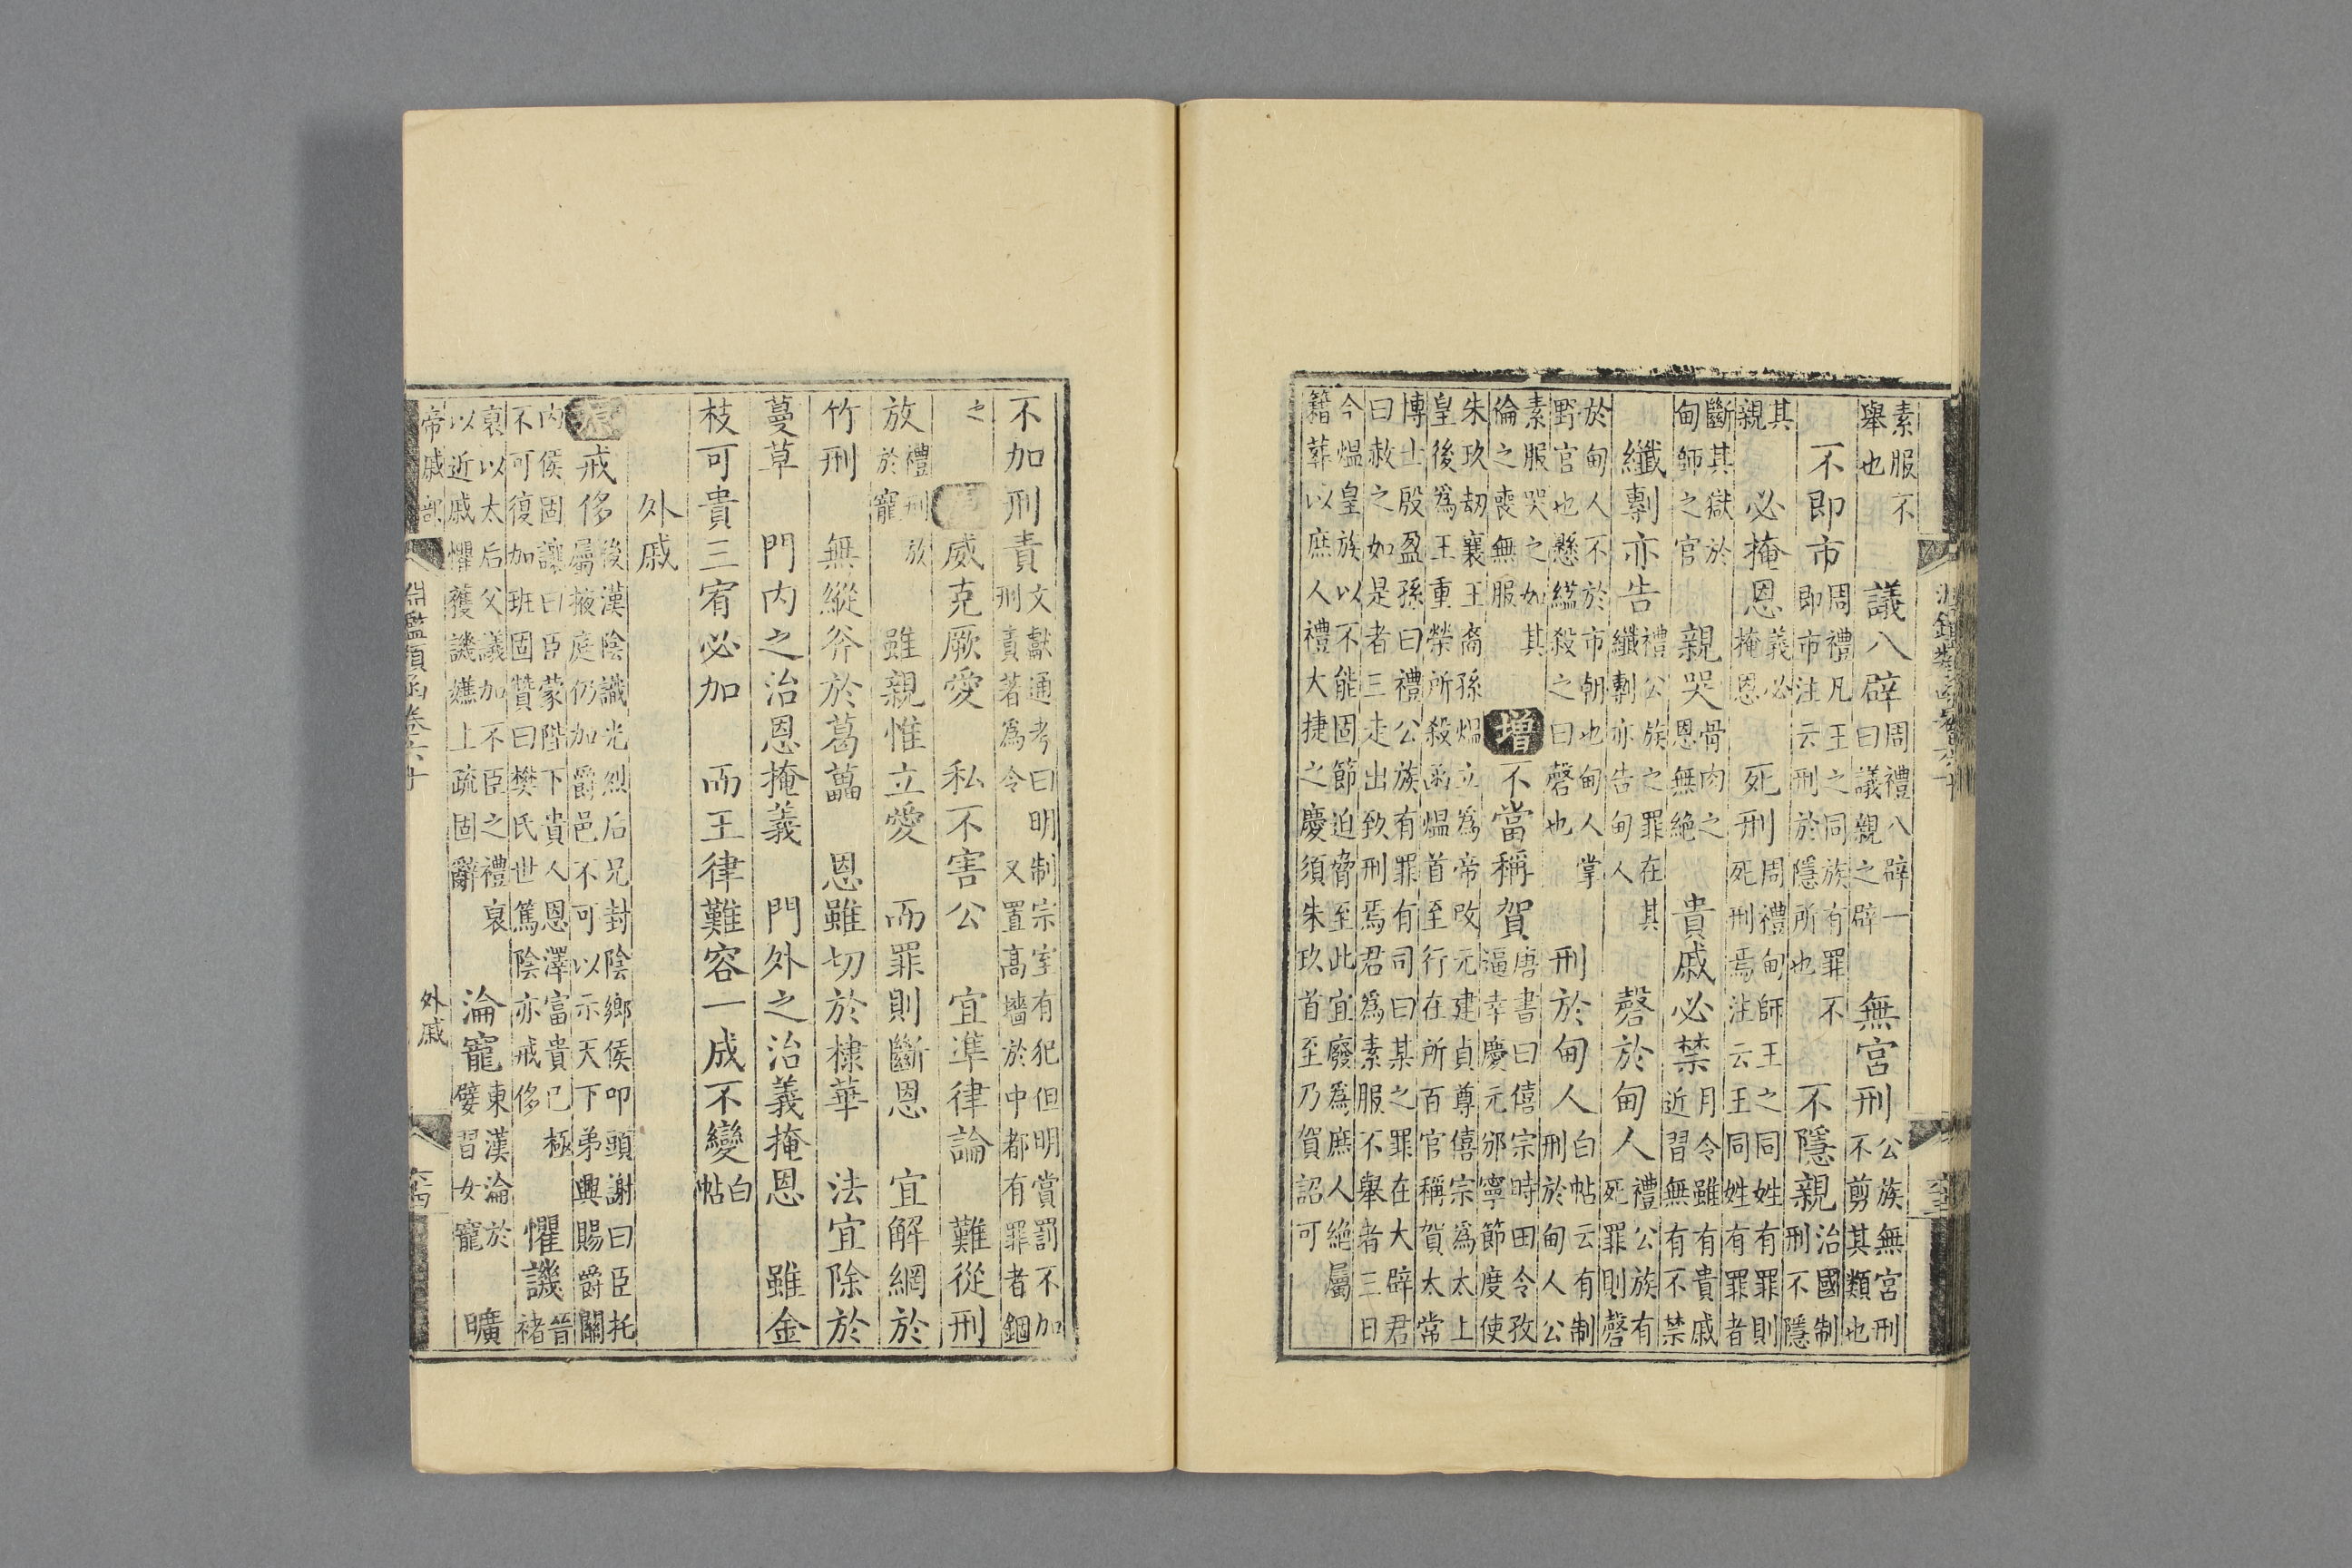 素服不舉也議八辟周禮八辟一曰議親之辟無宮刑公族無宮刑不剪其類也
不即市周禮凡王之同族有罪不即市注云刑於隱所也不隱親治國制刑不隱
其親必掩恩義必掩恩死刑周禮甸師王之同姓有罪則死刑焉注云王同姓有罪者
斷其獄於甸師之官親哭骨肉之恩無絕貴戚必禁月令雖有貴戚近習無有不禁
纖剸亦告禮公族之罪在其纖剸亦告甸人磬於甸人禮公族有死罪則磬
於甸人不於市朝也甸人掌野官也懸縊殺之曰磬也刑於甸人白帖云有制刑於甸人公
素服哭之如其倫之喪無服增不當稱賀唐書曰僖宗時田令孜逼幸慶元邠寧節度使
朱玫劫襄王裔孫熅立爲帝改元建貞尊僖宗爲太上皇後爲王重榮所殺函熅首至行在所百官稱賀太常
博士殷盈孫曰禮公族有罪有司曰某之罪在大辟君曰赦之如是者三走出致刑焉君爲素服不舉者三日
今熅皇族以不能固節迫脅至此宜廢爲庶人絕屬籍葬以庶人禮大捷之慶須朱玫首至乃賀詔可
不加刑責文獻通考曰明制宗室有犯但明賞罰不加刑責著爲令又置高墻於中都有罪者錮
之威克厥愛私不害公宜準律論難從刑
放禮刑放於寵雖親惟立愛而罪則斷恩宜解網於
竹刑無縱斧於葛藟恩雖切於棣華法宜除於
蔓草門內之治恩掩義門外之治義掩恩雖金
枝可貴三宥必加而王律難容一成不變白帖
外戚
戒侈後漢陰識光烈后兄封陰鄉侯叩頭謝曰臣托屬掖庭仍加爵邑不可以示天下弟興賜爵關
內侯固讓曰臣蒙陛下貴人恩澤富貴已極不可復加班固贊曰樊氏世篤陰亦戒侈懼譏晉褚
裒以太后父議加不臣之禮裒以近戚懼獲譏嫌上疏固辭淪寵東漢淪於嬖習女寵曠
帝戚部 外戚
淵鑑類函卷六十